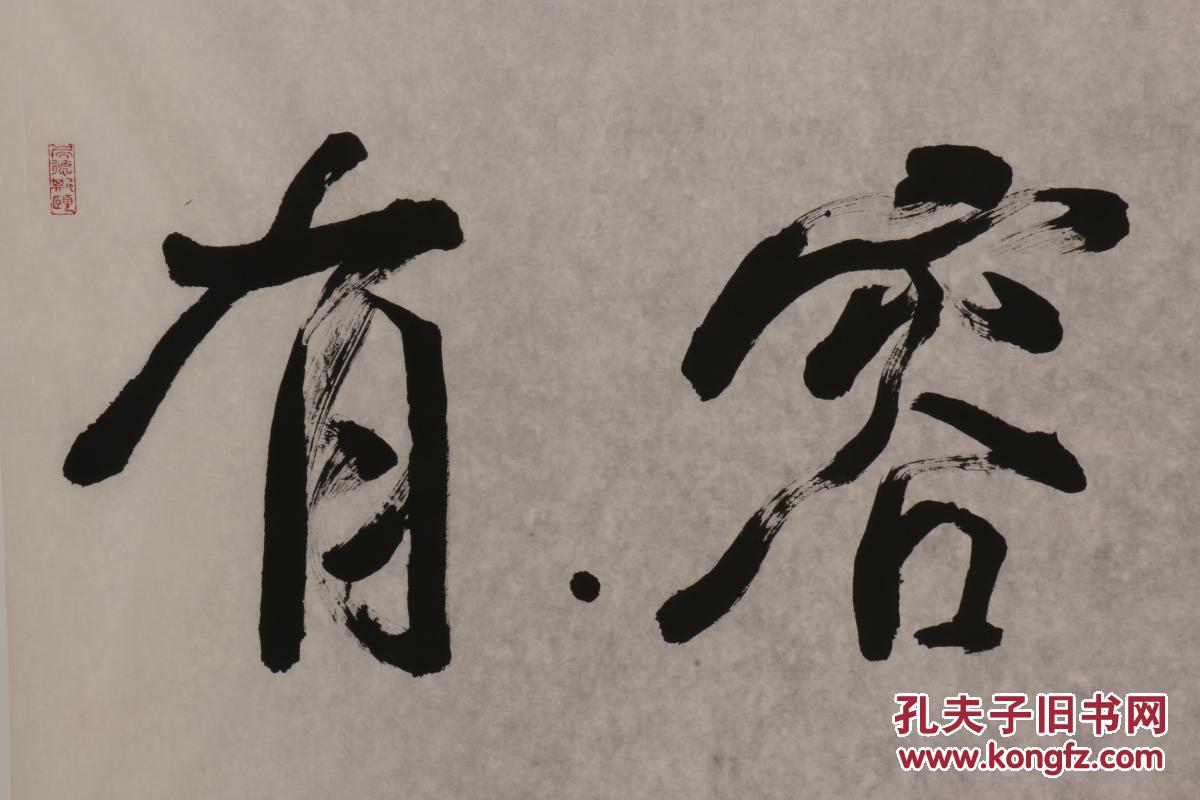 有·容
孔夫子旧书网
www.kongfz.com